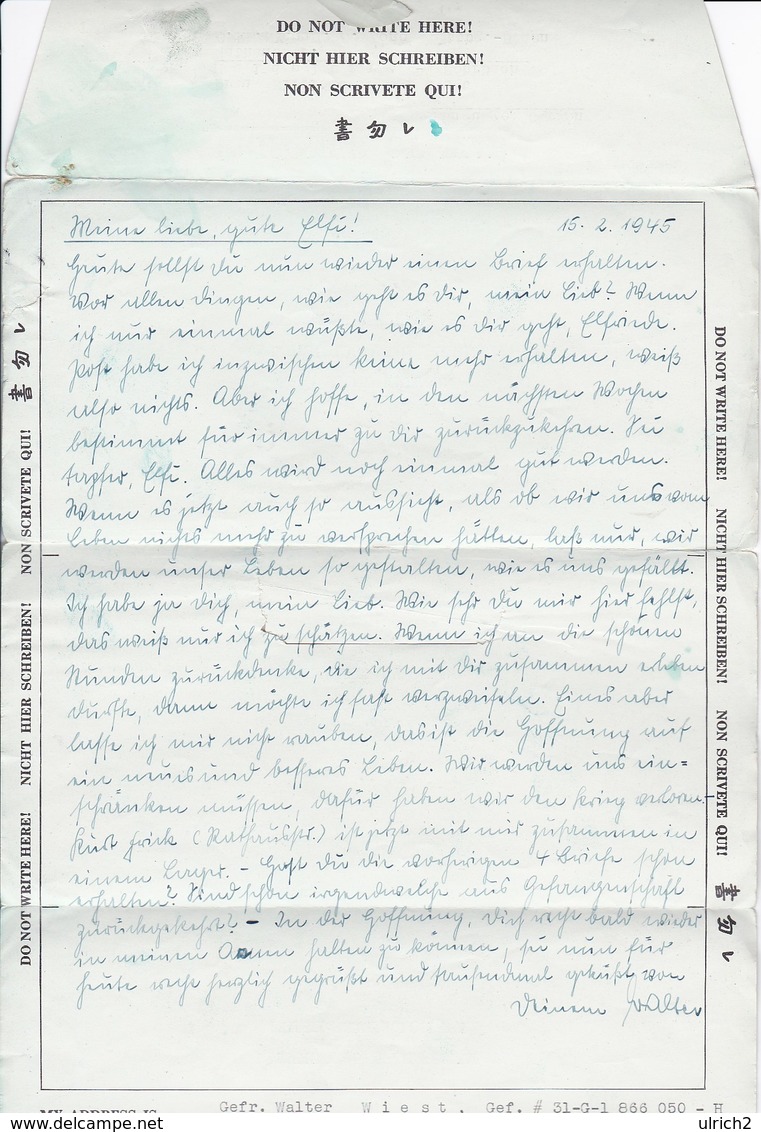 DO NOT WRITE HERE!
NICHT HIER SCHREIBEN!
NON SCRIVETE QUI!
書勿レ
Meine liebe, gute Elfi! 15. 2. 1945
Heute sollst Du nun wieder einen Brief erhalten.
Vor allen Dingen, wie geht es Dir, mein Lieb? Wenn
ich nur einmal wüßte, wie es Dir geht, Elfriede.
Post habe ich inzwischen keine mehr erhalten, weiß
also nichts. Aber ich hoffe, in den nächsten Wochen
bestimmt für immer zu Dir zurückzukehren. Sei
tapfer, Elfi. Alles wird noch einmal gut werden.
Wenn es jetzt auch so aussieht, als ob wir uns vom
Leben nichts mehr zu versprechen hätten, laß nur, wir
werden unser Leben so gestalten, wie es uns gefällt.
Ich habe ja Dich, mein Lieb. Wie sehr Du mir hier fehlst,
das weiß nur ich zu schätzen. Wenn ich an die schönen
Stunden zurückdenke, die ich mit Dir zusammen erleben
durfte, dann möchte ich fast verzweifeln. Eines aber
lasse ich mir nicht rauben, das ist die Hoffnung auf
ein neues und besseres Leben. Wir werden uns ein=
schränken müssen, dafür haben wir den Krieg verloren.-
Kurt Frick (Rathausstr.) ist jetzt mit mir zusammen in
einem Lager. - Hast Du die vorherigen 4 Briefe schon
erhalten? Sind schon irgendwelche aus Gefangenschaft
zurückgekehrt? - In der Hoffnung, Dich recht bald wieder
in meinen Armen halten zu können, sei nun für
heute recht herzlich gegrüßt und tausendmal geküßt von
Deinem Walter
DO NOT WRITE HERE! NICHT HIER SCHREIBEN! NON SCRIVETE QUI! 書勿レ
DO NOT WRITE HERE! NICHT HIER SCHREIBEN! NON SCRIVETE QUI! 書勿レ
MY ADDRESS IS Gefr. Walter Wiest, Gef. # 31-G-1 866 050 - H
www.delcampe.net ulrich2